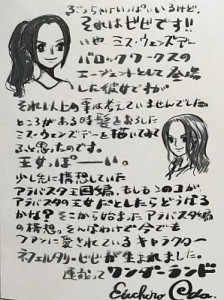 ぶっちゃけいっぱいいるけど、
それはビビです!!
いや ミス・ウェンズデー
バロックワークスの
エージェントとして登場
した彼女ですが
それ以上の事は考えていませんでした。
ところがある時髪をおろした
ミス・ウェンズデーを描いてみて
ふと思ったのです。
王女っぽーい。
少し先に構想していた
アラバスタ王国編、もしもこのコが
アラバスタの王女だとしたらどうなる
かな？そこから始まったアラバスタ編
の構想。そんなわけで今でも
ファンに愛されているキャラクター
ネフェルタリ・ビビが生まれました。
連載って ワンダーランド
Eiichiro Oda.